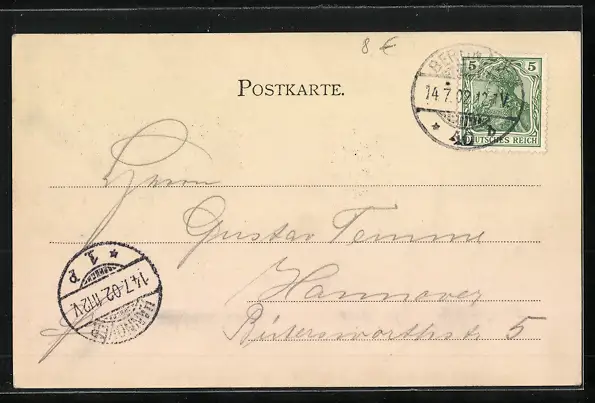 8 €
POSTKARTE.
BERLIN
14.7.02.12-1V.
* 40 b *
5 5
DEUTSCHES REICH
Herrn
Gustav Temme
Hannover
5
* 1 P
14.7.02.11-12V.
HANNOVER